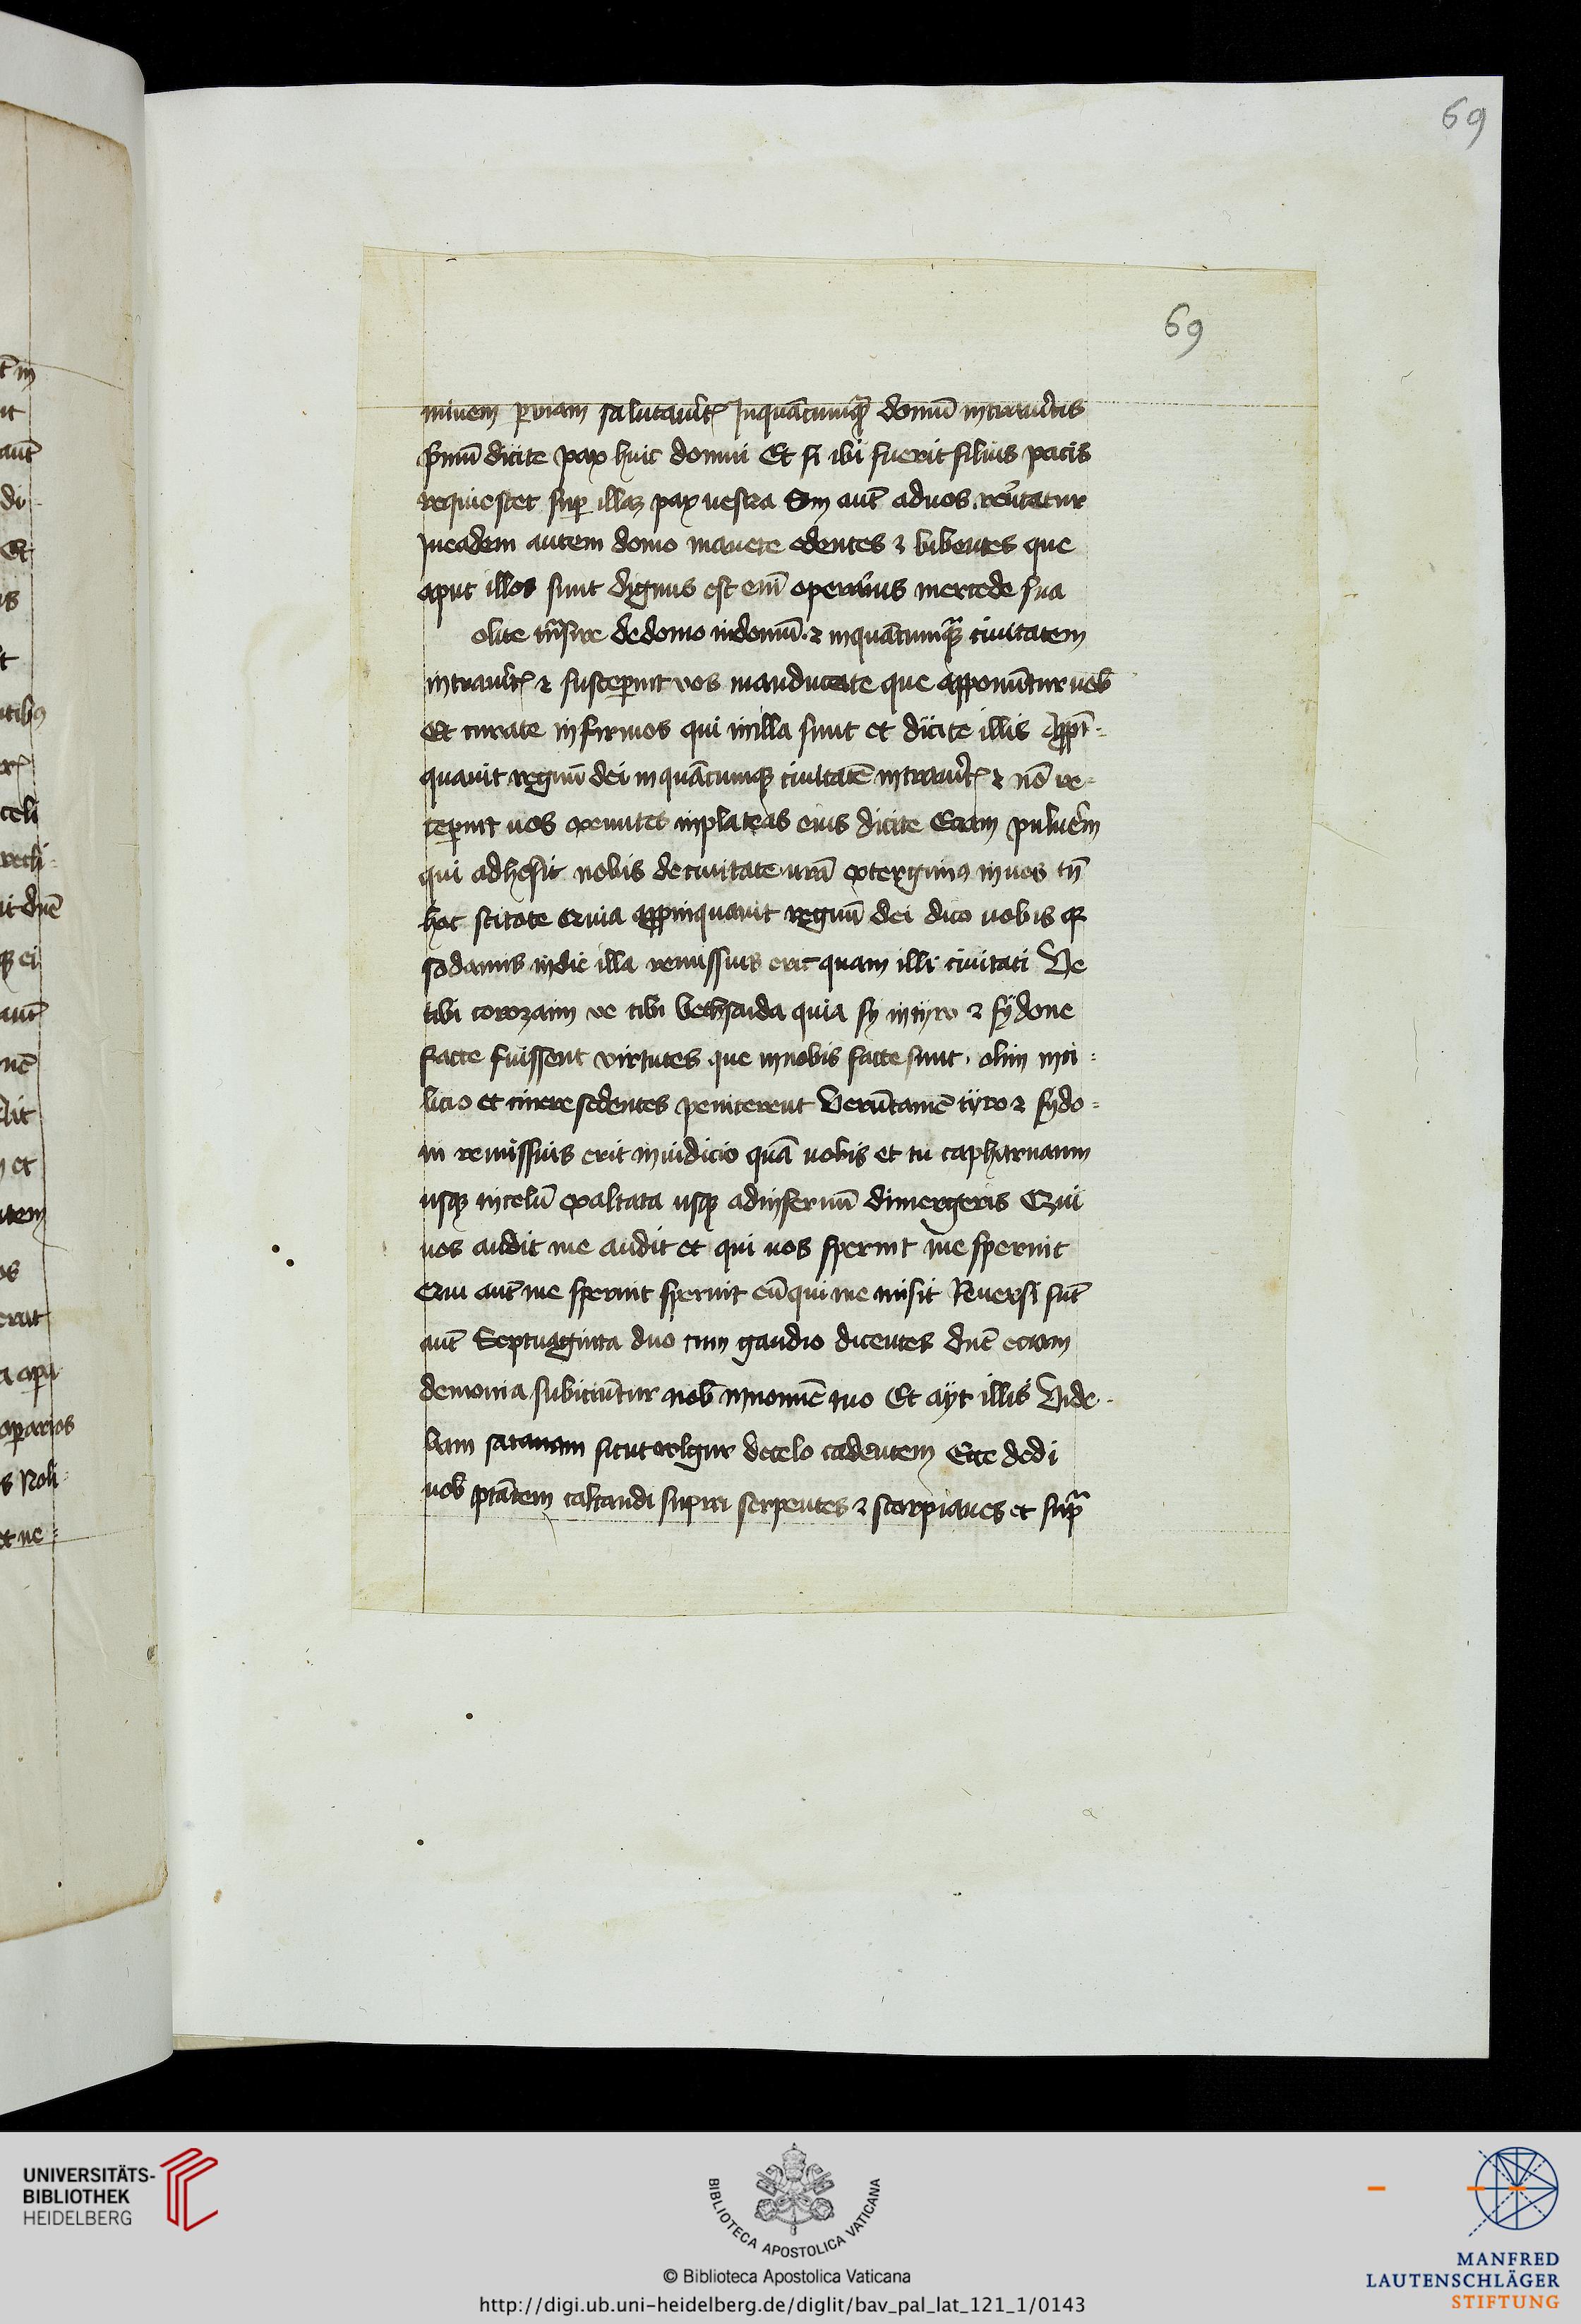 69
69
minem p viam salutauīt Inquācumq̄ domū intraūitis
p̄mū dicite pax huic domui Et si ibi fuerit filius pacis
requiescet sup illaȝ pax uestra Sin aut̄ aduos reūtatur
Ineadem autem domo manete edentes ⁊ bibentes que
aput illos sunt dignus est eni᷒ operarius mercede sua
olite tn̄sire dedomo indomū ⁊ inquācumq̄ ciuitatem
intrauīt ⁊ susceperint vos manducate que apponūtur uob̄
Et curate infirmos qui inilla sunt et dicite illis Appī-
quauit regnū dei inquācumq; ciuitatē intrauīt ⁊ nō re-
ceperint uos exeuntes inplateas eius dicite Eciam puluēm
qui adhesit nobis deciuitate urā extergim9 inuos tn̄
hoc scitote Quia appinquauit regnū dei dico uobis q
sodamis indie illa remissius erit quam illi ciuitati Ve
tibi corozaim ve tibi bethsaida quia sy intyro ⁊ sydone
facte fuissent virtutes que inuobis facte sunt . olim inci-
licio et cinere sedentes peniterent Verūtamē tyro ⁊ sydo-
ni remissius erit iniudicio quā uobis et tu capharnaum
usq; incelū exaltata usq; adinfernū dimergeris Qui
uos audit me audit et qui uos spernit me spernit
Qui aut̄ me spernit spernit eū qui me misit Reuersi sūt
aut̄ Septuaginta duo cum gaudio dicentes dn̄e eciam
demonia subiciūtur nob̄ innomē tuo Et ayt illis Vide-
bam satanam sicut wlgur decelo cadentem Ecce dedi
uob̄ ptātem calcandi supra serpentes ⁊ scorpiones et supᵃ
UNIVERSITÄTS-
BIBLIOTHEK
HEIDELBERG
BIBLIOTECA APOSTOLICA VATICANA
© Biblioteca Apostolica Vaticana
http://digi.ub.uni-heidelberg.de/diglit/bav_pal_lat_121_1/0143
MANFRED
LAUTENSCHLÄGER
STIFTUNG